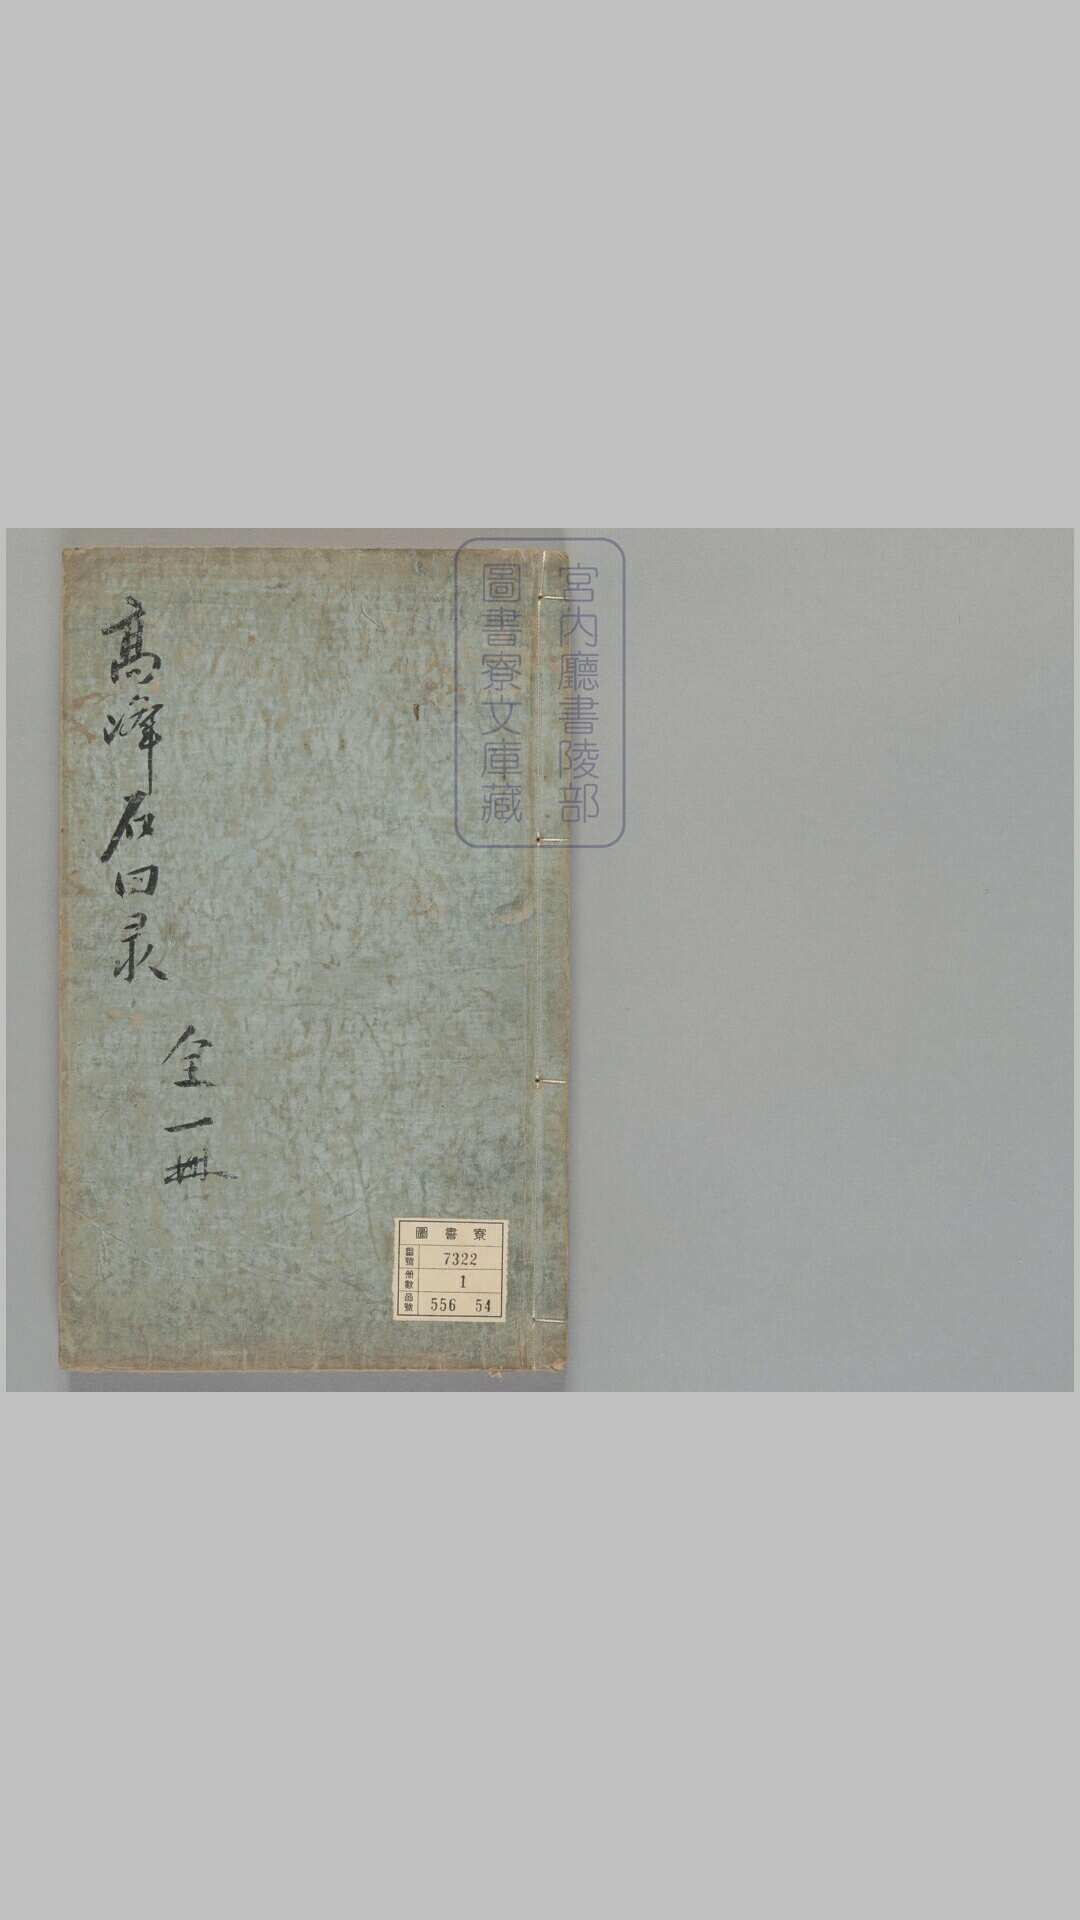 宮内廳書陵部
圖書寮文庫藏
高峰石回录
全一冊
圖書寮
番號 7322
册數 1
函號 556 54